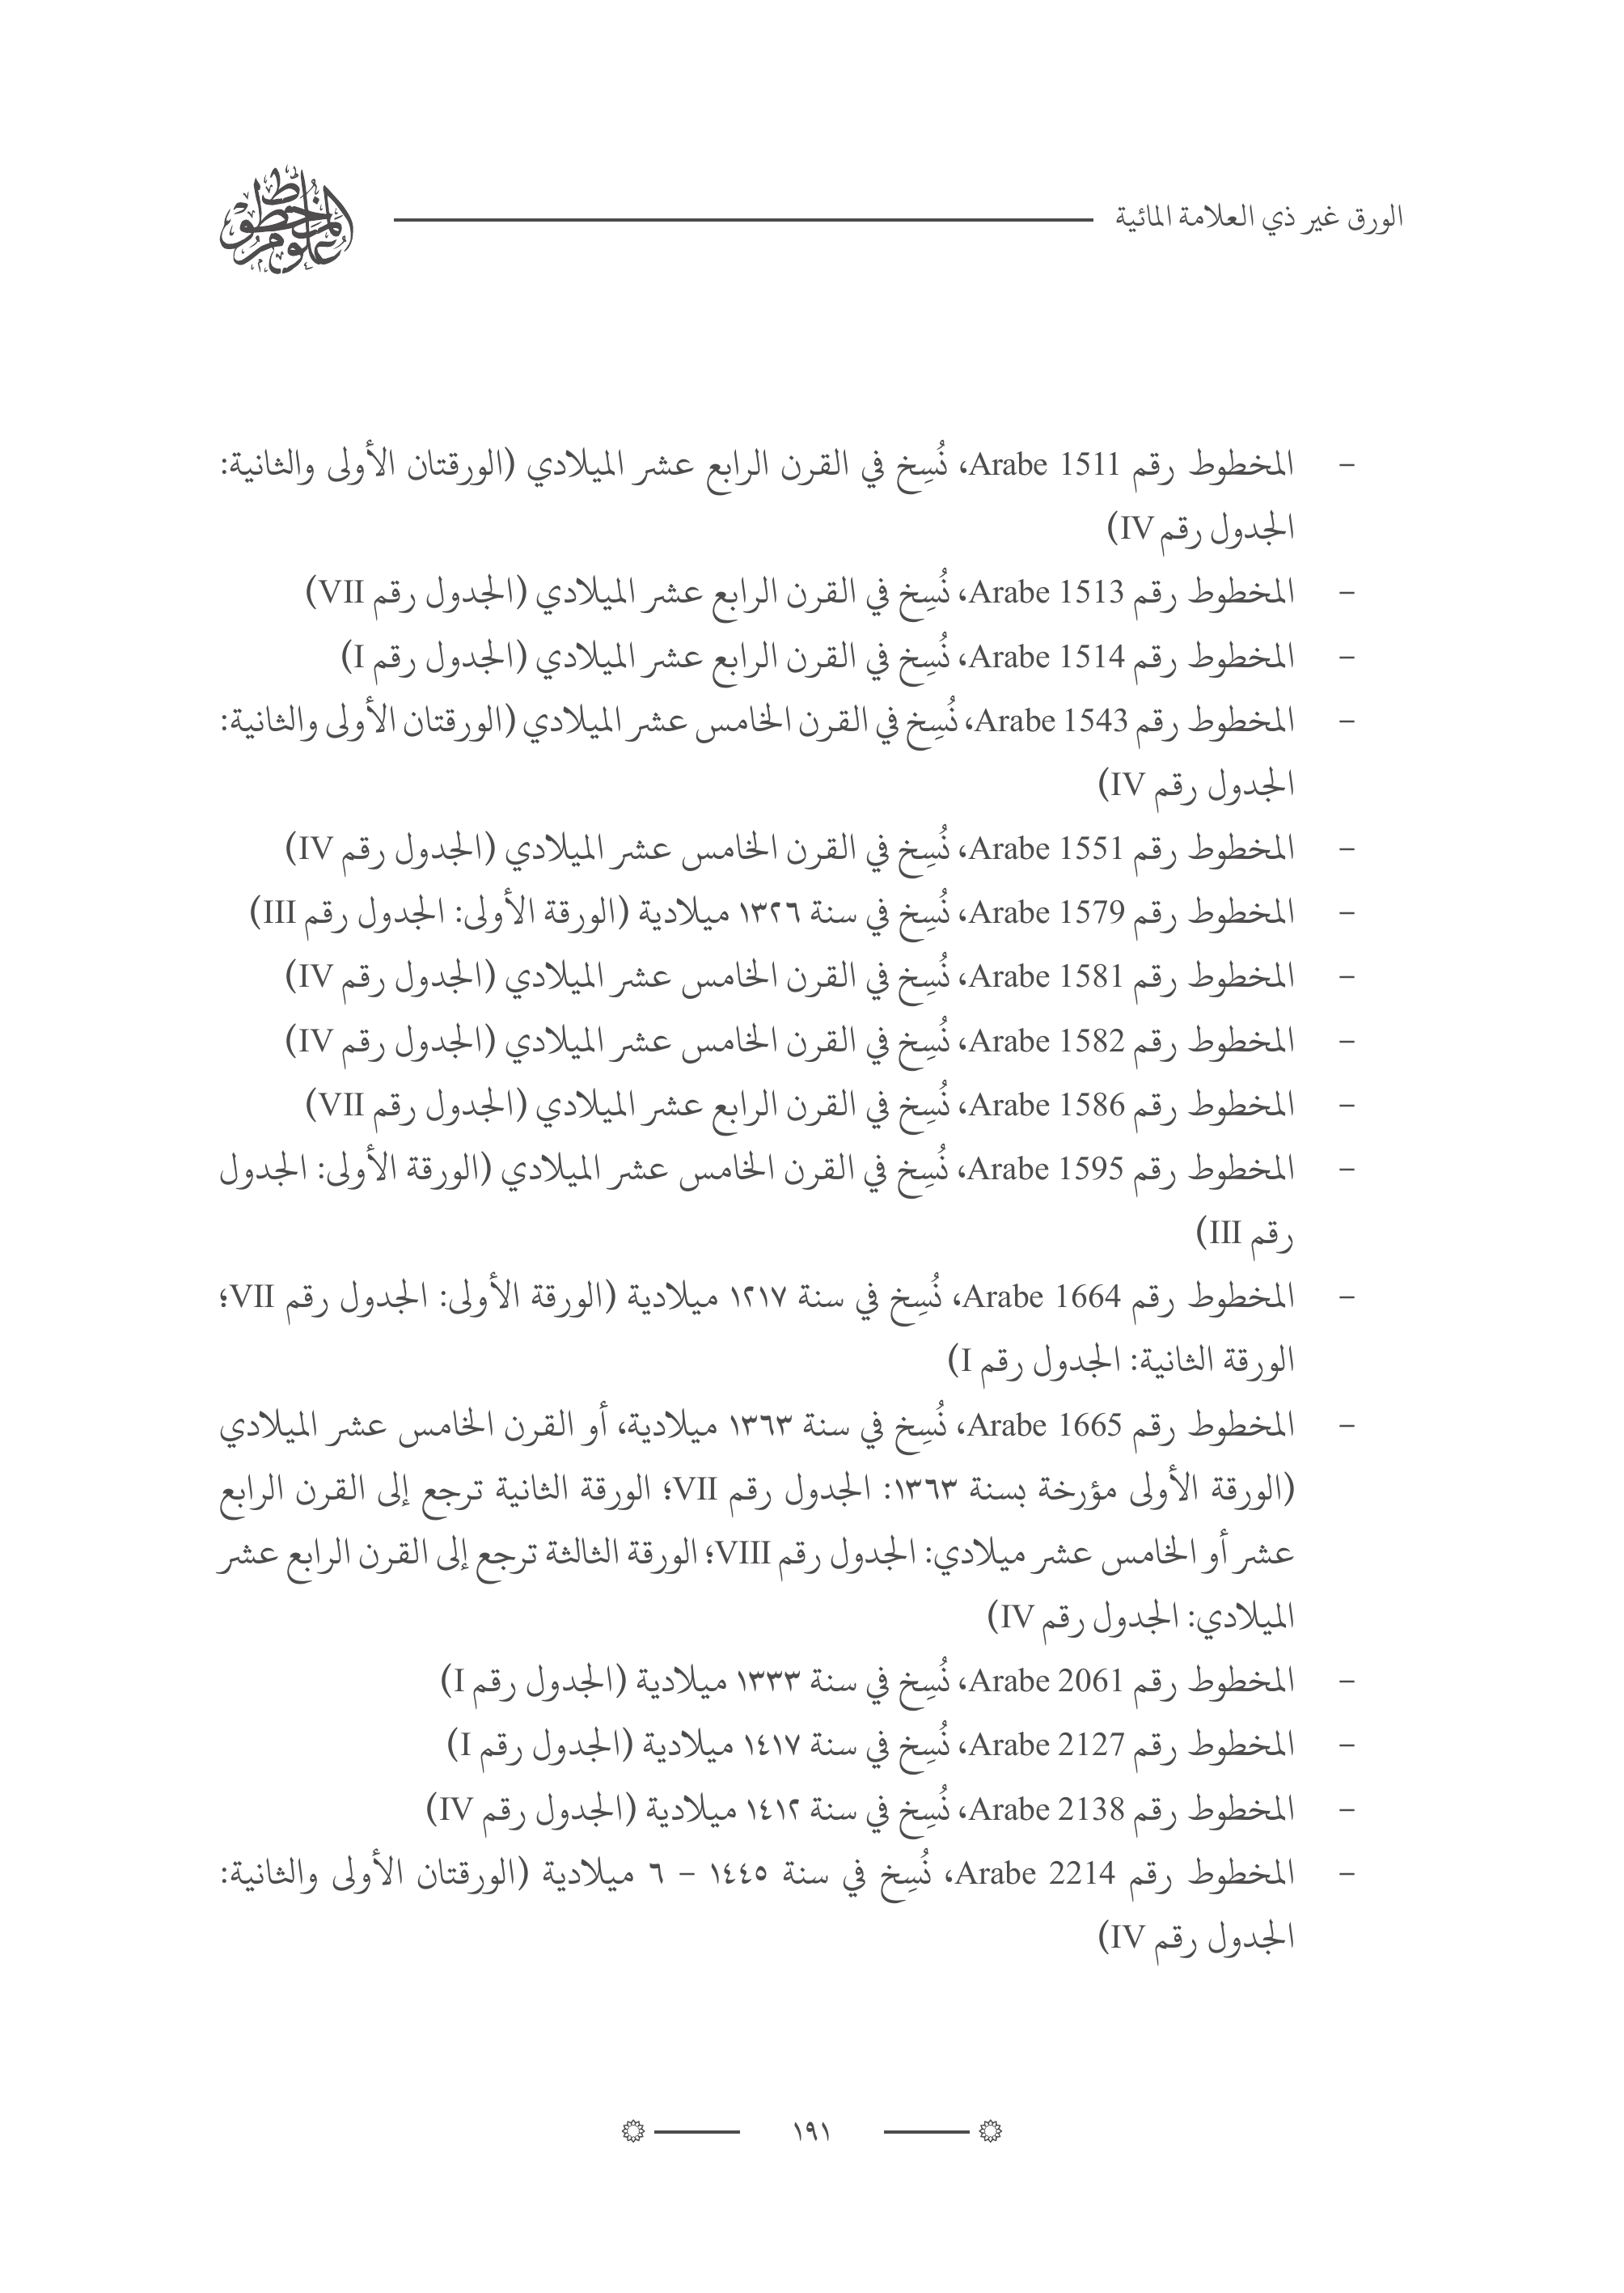 الورق غير ذي العلامة المائية
علوم المخطوط
- المخطوط رقم Arabe 1511، نُسِخ في القرن الرابع عشر الميلادي (الورقتان الأولى والثانية:
الجدول رقم IV)
- المخطوط رقم Arabe 1513، نُسِخ في القرن الرابع عشر الميلادي (الجدول رقم VII)
- المخطوط رقم Arabe 1514، نُسِخ في القرن الرابع عشر الميلادي (الجدول رقم I)
- المخطوط رقم Arabe 1543، نُسِخ في القرن الخامس عشر الميلادي (الورقتان الأولى والثانية:
الجدول رقم IV)
- المخطوط رقم Arabe 1551، نُسِخ في القرن الخامس عشر الميلادي (الجدول رقم IV)
- المخطوط رقم Arabe 1579، نُسِخ في سنة ١٣٢٦ ميلادية (الورقة الأولى: الجدول رقم III)
- المخطوط رقم Arabe 1581، نُسِخ في القرن الخامس عشر الميلادي (الجدول رقم IV)
- المخطوط رقم Arabe 1582، نُسِخ في القرن الخامس عشر الميلادي (الجدول رقم IV)
- المخطوط رقم Arabe 1586، نُسِخ في القرن الرابع عشر الميلادي (الجدول رقم VII)
- المخطوط رقم Arabe 1595، نُسِخ في القرن الخامس عشر الميلادي (الورقة الأولى: الجدول
رقم III)
- المخطوط رقم Arabe 1664، نُسِخ في سنة ١٢١٧ ميلادية (الورقة الأولى: الجدول رقم VII؛
الورقة الثانية: الجدول رقم I)
- المخطوط رقم Arabe 1665، نُسِخ في سنة ١٣٦٣ ميلادية، أو القرن الخامس عشر الميلادي
(الورقة الأولى مؤرخة بسنة ١٣٦٣: الجدول رقم VII؛ الورقة الثانية ترجع إلى القرن الرابع
عشر أو الخامس عشر ميلادي: الجدول رقم VIII؛ الورقة الثالثة ترجع إلى القرن الرابع عشر
الميلادي: الجدول رقم IV)
- المخطوط رقم Arabe 2061، نُسِخ في سنة ١٣٣٣ ميلادية (الجدول رقم I)
- المخطوط رقم Arabe 2127، نُسِخ في سنة ١٤١٧ ميلادية (الجدول رقم I)
- المخطوط رقم Arabe 2138، نُسِخ في سنة ١٤١٢ ميلادية (الجدول رقم IV)
- المخطوط رقم Arabe 2214، نُسِخ في سنة ١٤٤٥ - ٦ ميلادية (الورقتان الأولى والثانية:
الجدول رقم IV)
١٩١